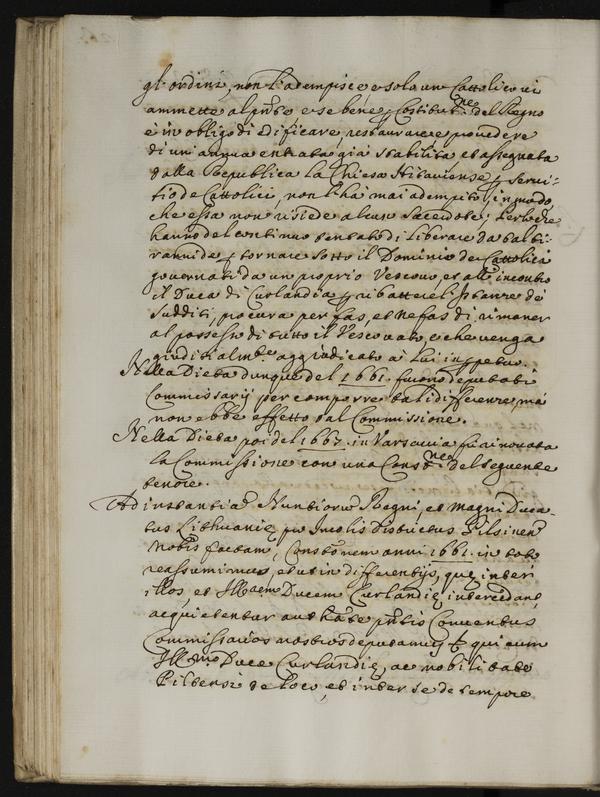 gl'ordini, non l'adempisce, e solo un Cattolico vi
ammette al pnte e se bene p Constitut.ne del Regno
è in obligo di edificare, restaurare e provedere
di un annua entrata già stabilita et assegnata
dalla Republica la Chiesa p servi-
tio de Cattolici, non l'hà mai adempito, in modo
che essa non risiede alcun Sacerdote; Perloche
hanno del continuo tentato di liberare da tal ti-
rannide, e tornare sotto il Dominio de Cattolici
governati da un proprio Vescovo, et all'incontro
il Duca di Curlandia p ribattere l'Istanze de
sudditi, procura per fas, et nefas di rimaner
al possesso di tutto il Vescovato e che venga
giuditialm.te aggiudicato à lui in ppetuo.
Nella Dieta dunque del 1661. furono deputati
Commissarij per comporre tali differenze, mà
non ebbe effetto tal Commissione.
Nella Dieta poi del 1667. in Varsavia fù rinovata
la Commissione con una Const.ne del seguente
tenore.
Ad instantiā Nuntiorū Regni, et Magni Duca-
tus Lithuanię pro Incolis Districtus Pilsinen
Nobis factam, Constōnem anni 1661. in toto
reassumimus, et ut in differentijs, quę inter
illos, et Illmm Ducem Curlandię intercedant,
acquietentur authāte pntis Conventus
Commissarios nostros deputamus qui cum
Illmo Duce Curlandię, ac nobilitate
Piltensi de loco, et inter se de tempore